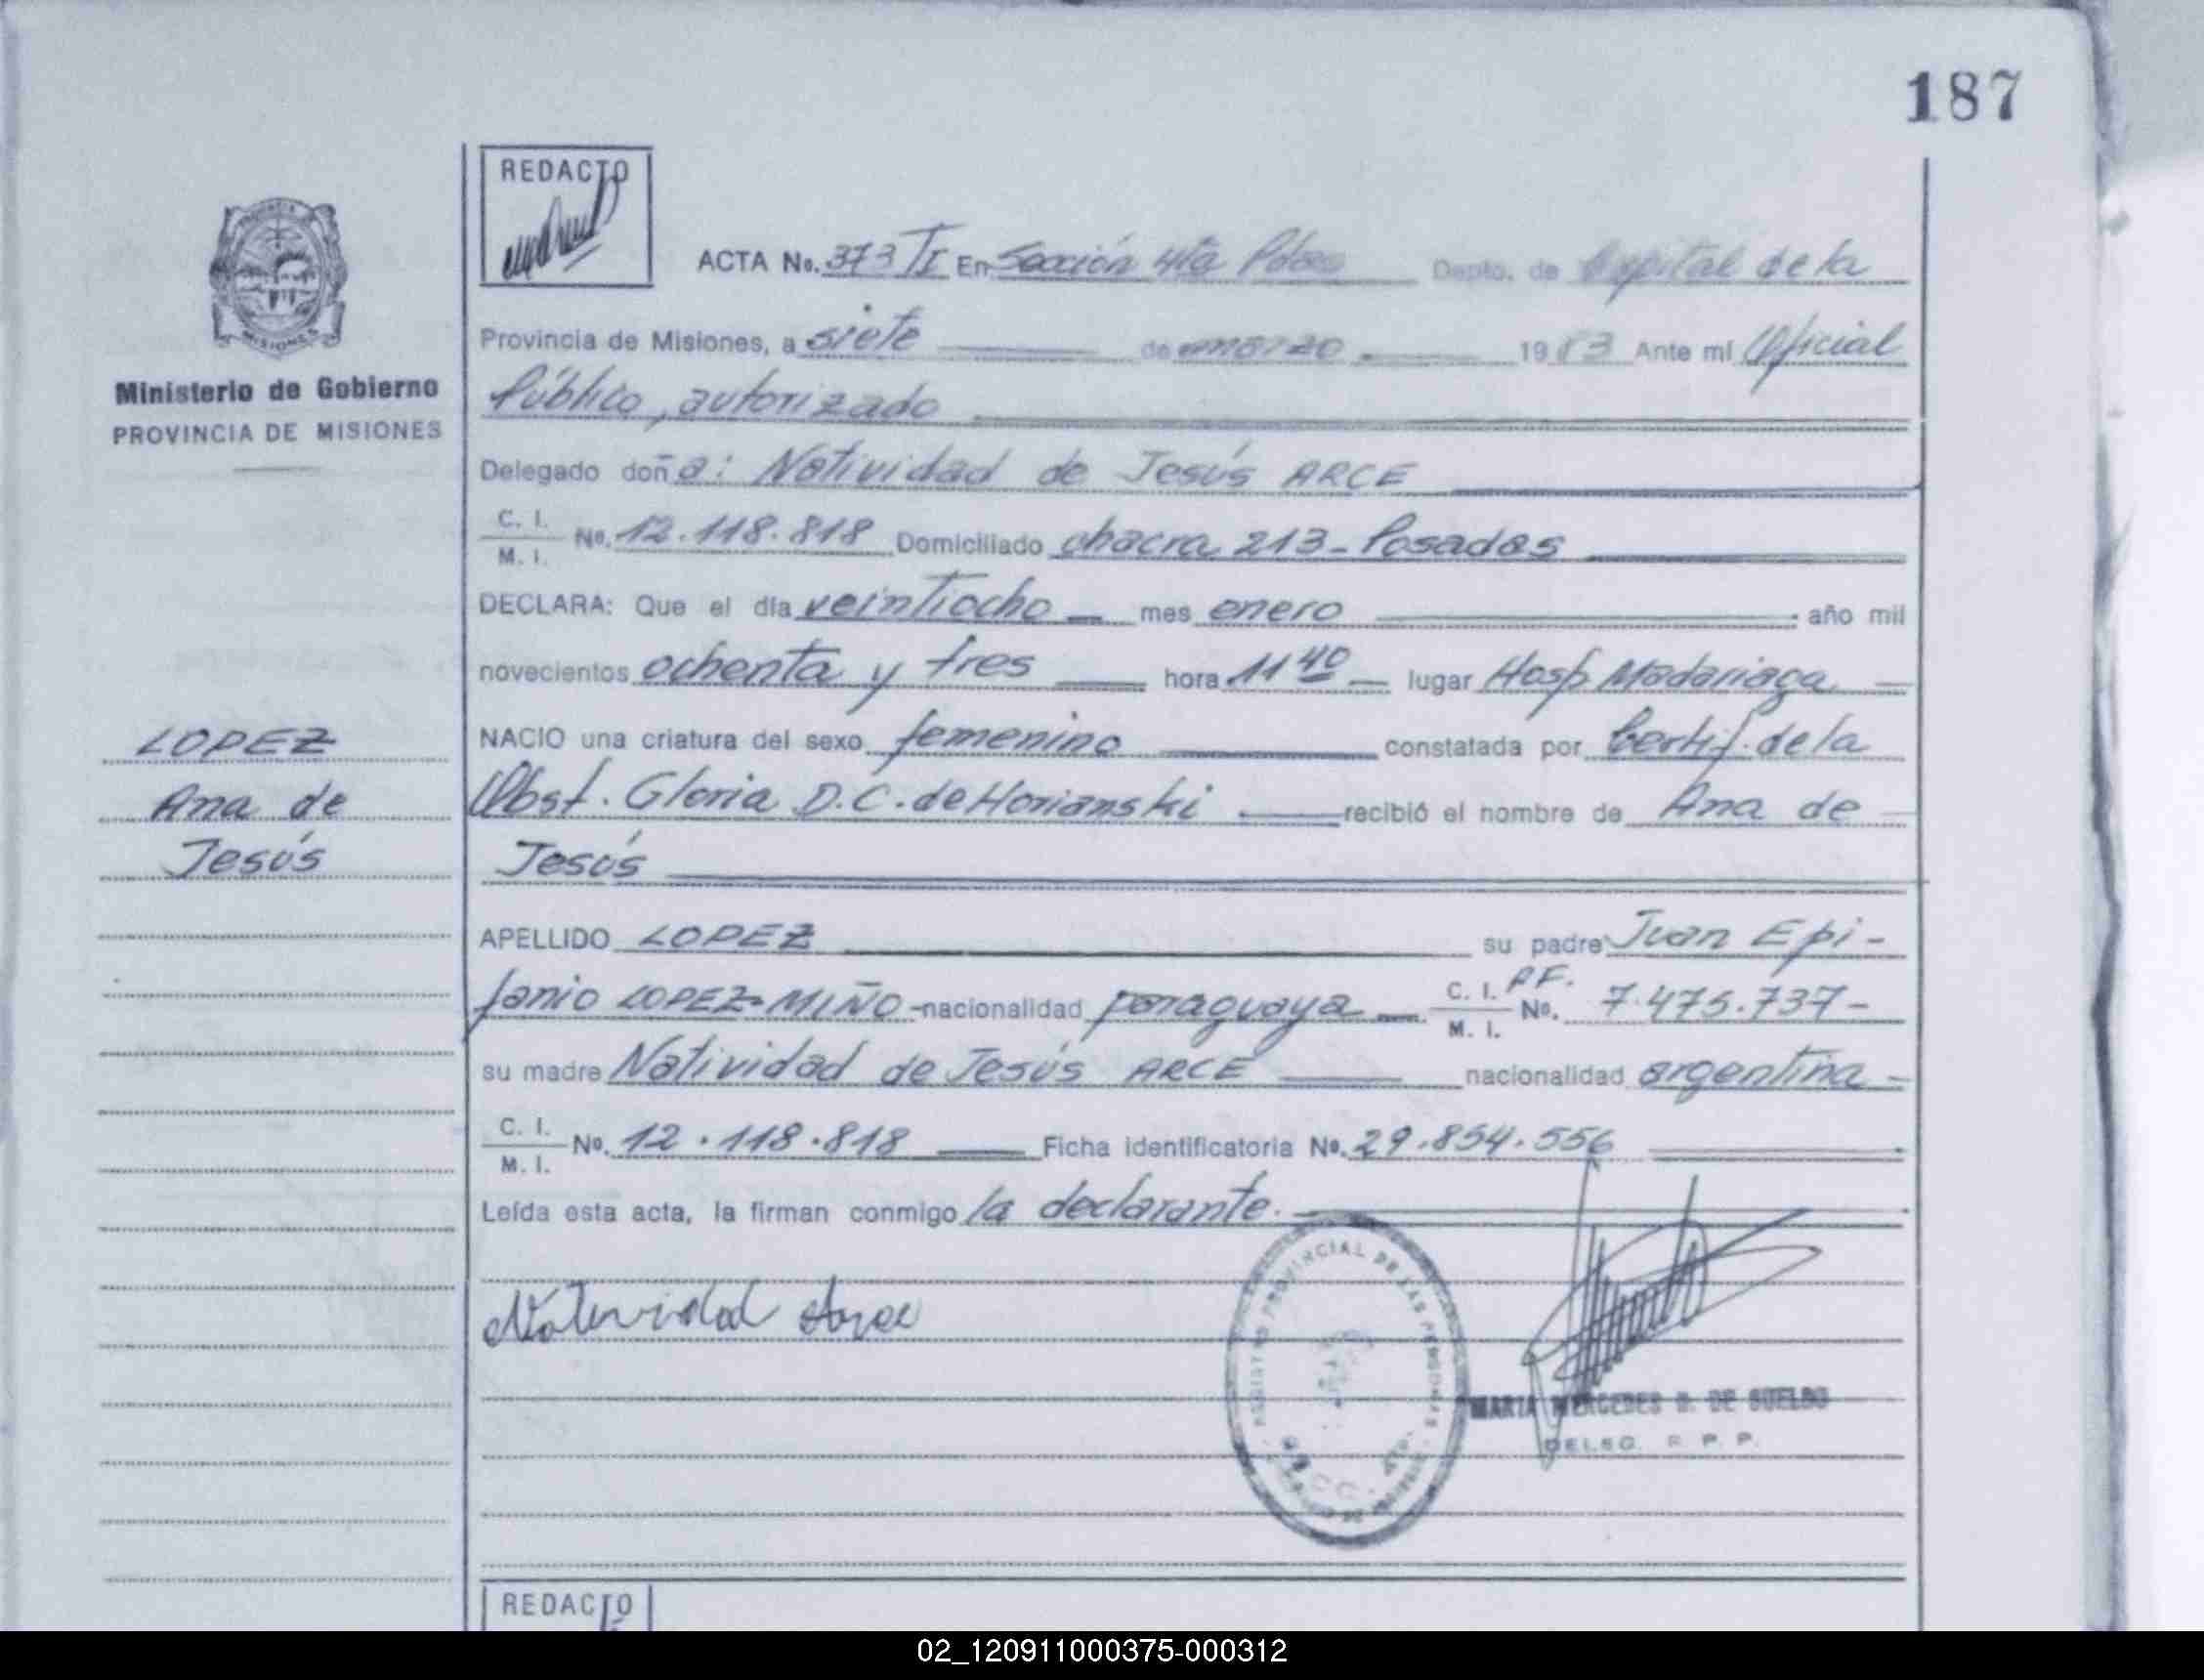 187
REDACTO
ACTA No. 373 TI En Sección 4ta Pdas Depto. de Capital de la
Provincia de Misiones, a siete de marzo 1983 Ante mí Oficial
Ministerio de Gobierno
PROVINCIA DE MISIONES
Público, autorizado
Delegado doña: Natividad de Jesús ARCE
C. I.
M. I. No. 12.118.818 Domiciliado chacra 213 - Posadas
DECLARA: Que el día veintiocho mes enero año mil
novecientos ochenta y tres hora 11 40 lugar Hosp Madariaga
LOPEZ
NACIO una criatura del sexo femenino constatada por Certif. de la
Ana de
Obst. Gloria D.C. de Horianski recibió el nombre de Ana de
Jesús
Jesús
APELLIDO LOPEZ su padre Juan Epi-
fanio LOPEZ-MIÑO - nacionalidad paraguaya C. I. P.F.
M. I. No. 7.475.737-
su madre Natividad de Jesús ARCE nacionalidad argentina -
C. I.
M. I. No. 12.118.818 Ficha identificatoria No. 29.854.556
Leída esta acta, la firman conmigo la declarante.
Natividad Arce
PROVINCIAL DE LAS PERSONAS
MARIA MERCEDES D. DE SUELDO
DELEG. R. P. P.
REDACTO
02_120911000375-000312